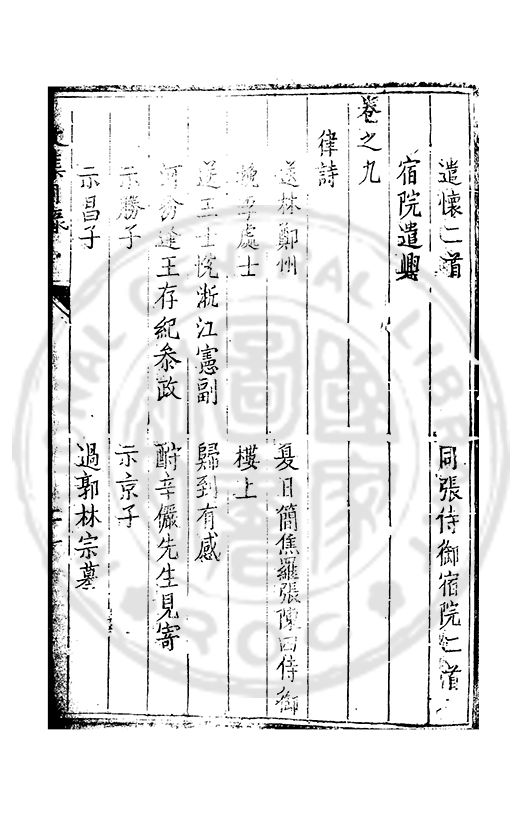 遣懷二首 同張侍御宿院二首
宿院遣興
卷之九
律詩
送林鄭州 夏日簡焦羅張陳四侍御
挽李處士 樓上
送王士悅浙江憲副 歸到有感
逢王存紀叅政 酧辛儼先生見寄
示勝子 示京子
示昌子 過郭林宗墓